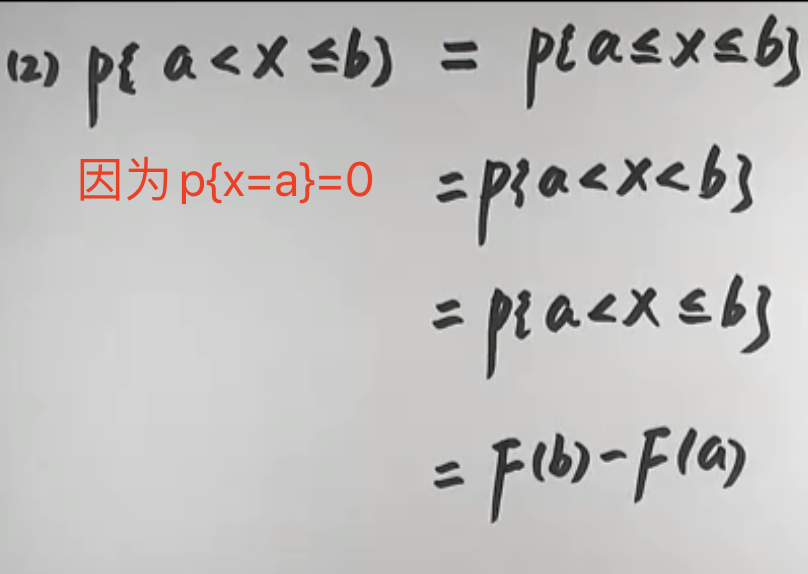 (2) p{ a < x ≤ b) = p{a ≤ x ≤ b}
因为 p{x=a}=0
= p{a < x < b}
= p{a < x ≤ b}
= F(b) - F(a)